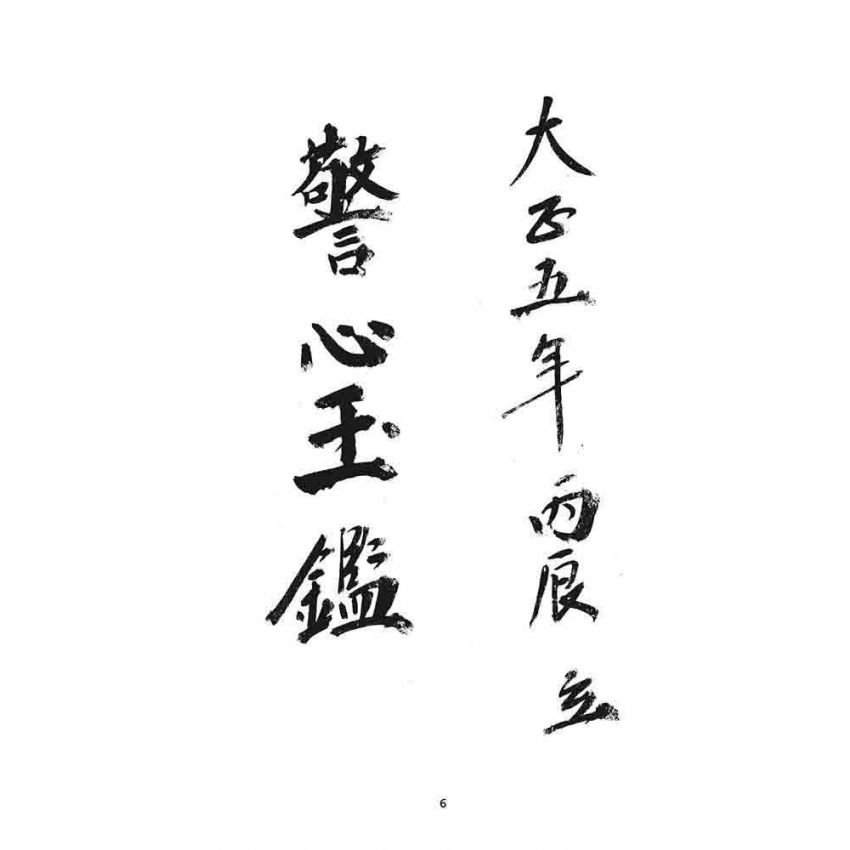 大正五年丙辰立
警心玉鑑
6